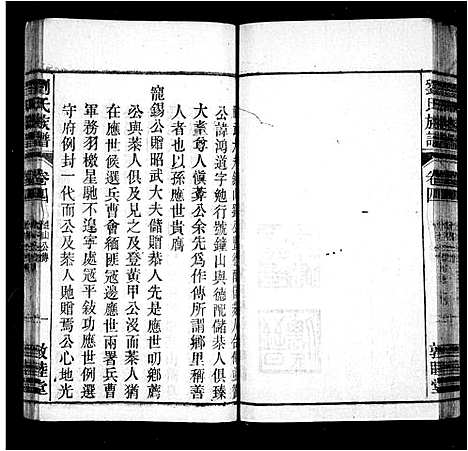 劉氏族譜
卷四
敦睦堂
公諱鴻道字勉行號鏡山與德配儲恭人俱臻
大耋尊人愼菴公余先爲作傳所謂鄉里稱善
人者也以孫應世貴膺
寵錫公贈昭武大夫儲贈恭人先是應世叨鄉薦
公與恭人俱及見之及登黃甲公沒而恭人猶
在應世候選兵曹會緬匪冦邊應世兩署兵曹
軍務羽檄星馳不遑寧處冦平敘功應世例選
守府例封一代而公及恭人貤贈焉公心地光
劉氏族譜
卷四
敦睦堂